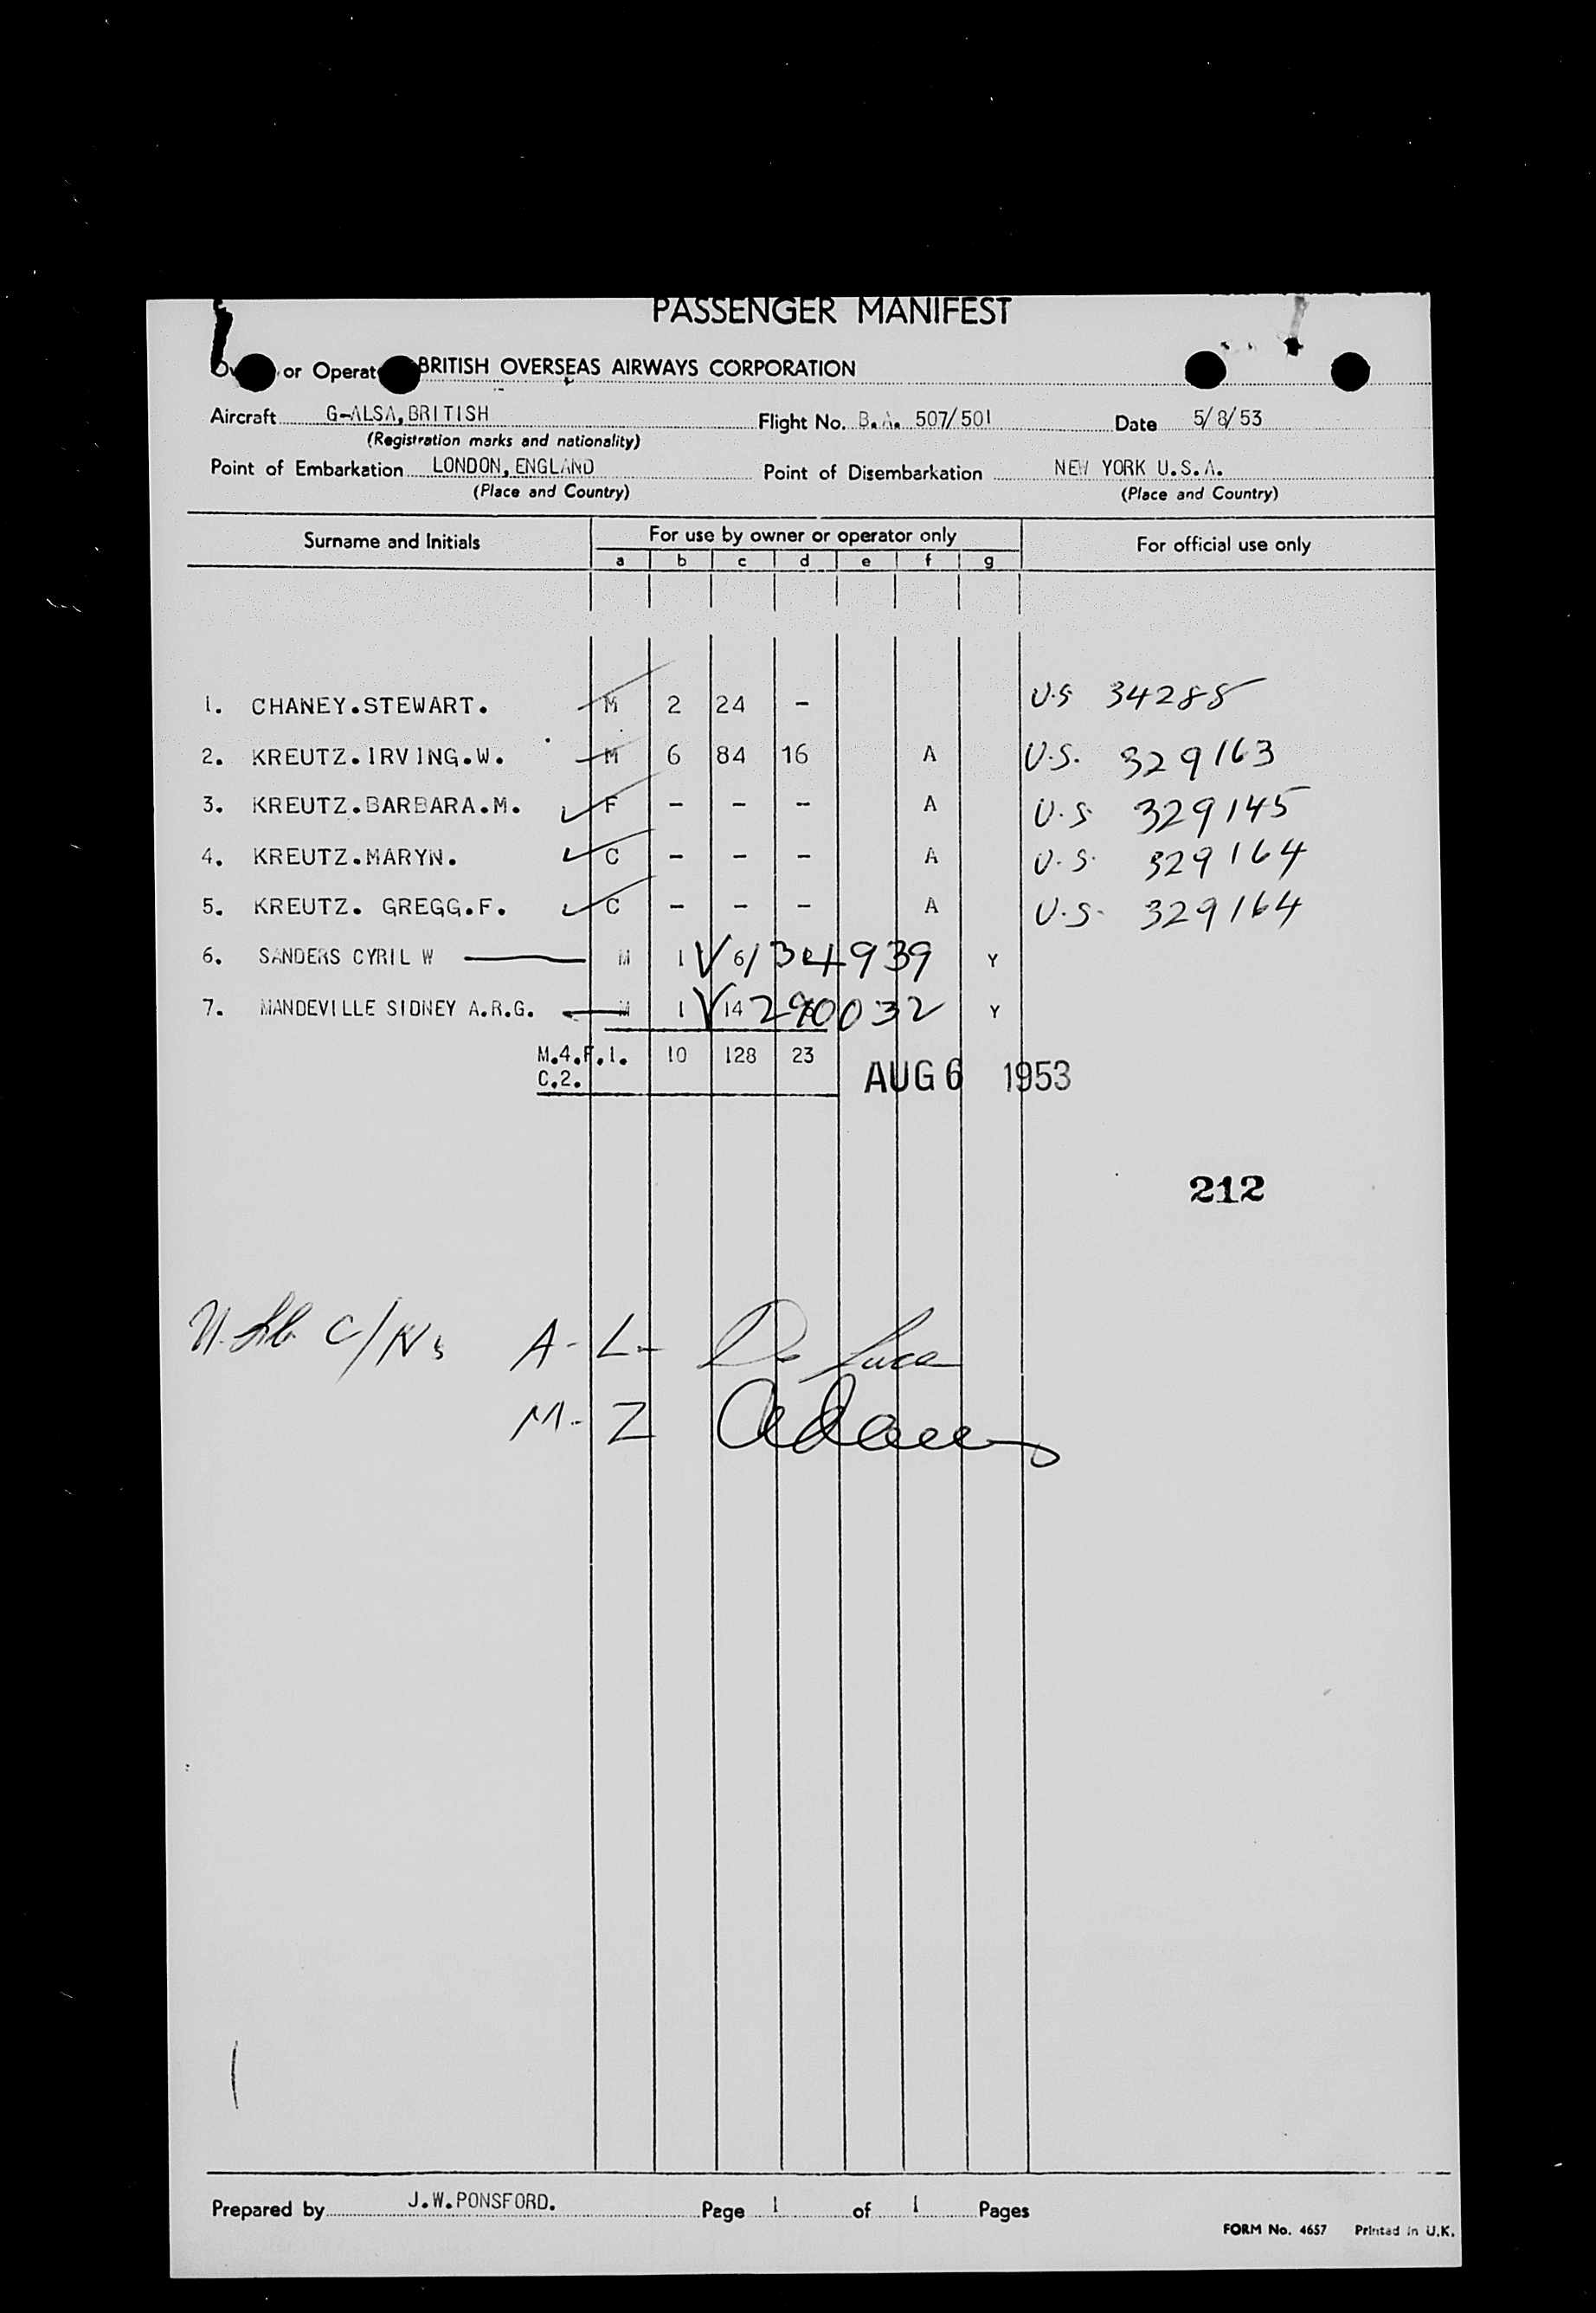 PASSENGER MANIFEST
or Operat BRITISH OVERSEAS AIRWAYS CORPORATION
Aircraft G-ALSA, BRITISH Flight No. B.A. 507/501 Date 5/8/53
(Registration marks and nationality)
Point of Embarkation LONDON, ENGLAND Point of Disembarkation NEW YORK U.S.A.
(Place and Country) (Place and Country)
Surname and Initials For use by owner or operator only For official use only
a b c d e f g
1. CHANEY.STEWART. M 2 24 - U.S 34288
2. KREUTZ.IRVING.W. M 6 84 16 A U.S. 329163
3. KREUTZ.BARBARA.M. F - - - A U.S 329145
4. KREUTZ.MARYN. C - - - A U.S. 329164
5. KREUTZ. GREGG.F. C - - - A U.S. 329164
6. SANDERS CYRIL W M 1 V 6/134939 Y
7. MANDEVILLE SIDNEY A.R.G. M 1 V 14 290032 Y
M.4.F.1. 10 128 23
C.2.
AUG 6 1953
212
A-L- De Luca
M-Z Adams
Prepared by J.W.PONSFORD. Page 1 of 1 Pages
FORM No. 4657 Printed in U.K.